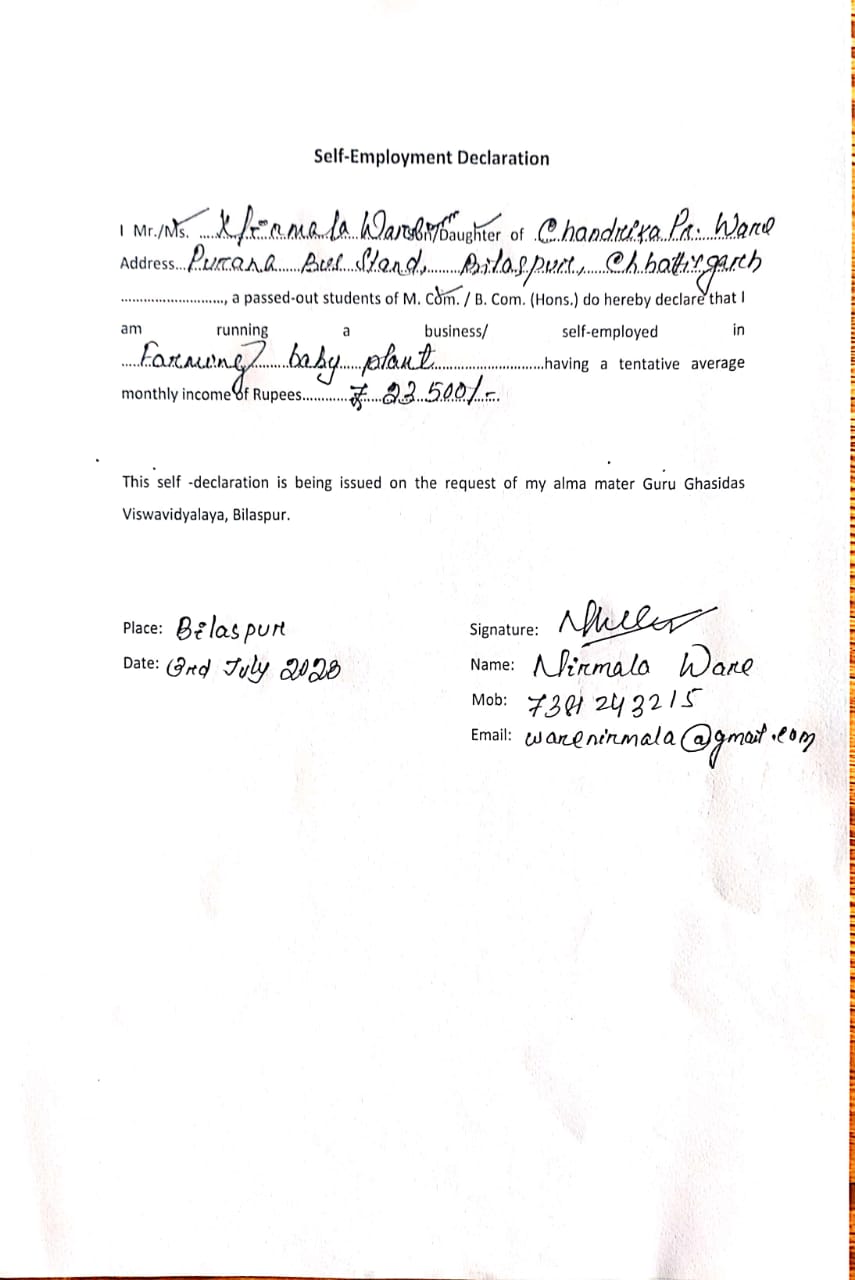 Self-Employment Declaration
I Mr./Ms. Nirmala Ware Daughter of Chandrika Pr. Ware
Address...Purana Bus Stand, Bilaspur, Chhattisgarh
............................, a passed-out students of M. Com. / B. Com. (Hons.) do hereby declare that I
am running a business/ self-employed in
.....Farming baby plant............................having a tentative average
monthly income of Rupees............₹ 23500/-
This self -declaration is being issued on the request of my alma mater Guru Ghasidas
Viswavidyalaya, Bilaspur.
Place: Bilaspur
Signature:
Date: 03rd July 2023
Name: Nirmala Ware
Mob:
Email: warenirmala@gmail.com